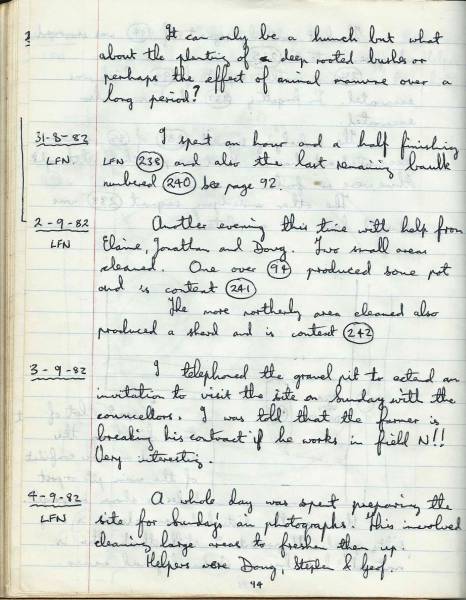 It can only be a hunch but what
about the planting of a deep rooted bushes or
perhaps the effect of animal manure over a
long period?
31-8-82 I spent an hour and a half finishing
LFN LFN 238 and also the last remaining baulk
numbered 240 See page 92.
2-9-82 Another evening this time with help from
LFN Elaine, Jonathan and Doug. Two small areas
cleaned. One over 94 produced some pot
and is context 241
The more northerly area cleaned also
produced a sherd and is context 242
3-9-82 I telephoned the gravel pit to extend an
invitation to visit the site on Sunday with the
councellors. I was told that the farmer is
breaking his contract if he works in field N!!
Very interesting.
4-9-82 A whole day was spent preparing the
LFN site for Sunday's air photographs. This involved
cleaning large areas to freshen them up.
Helpers were Doug, Stephen & Geof.
94